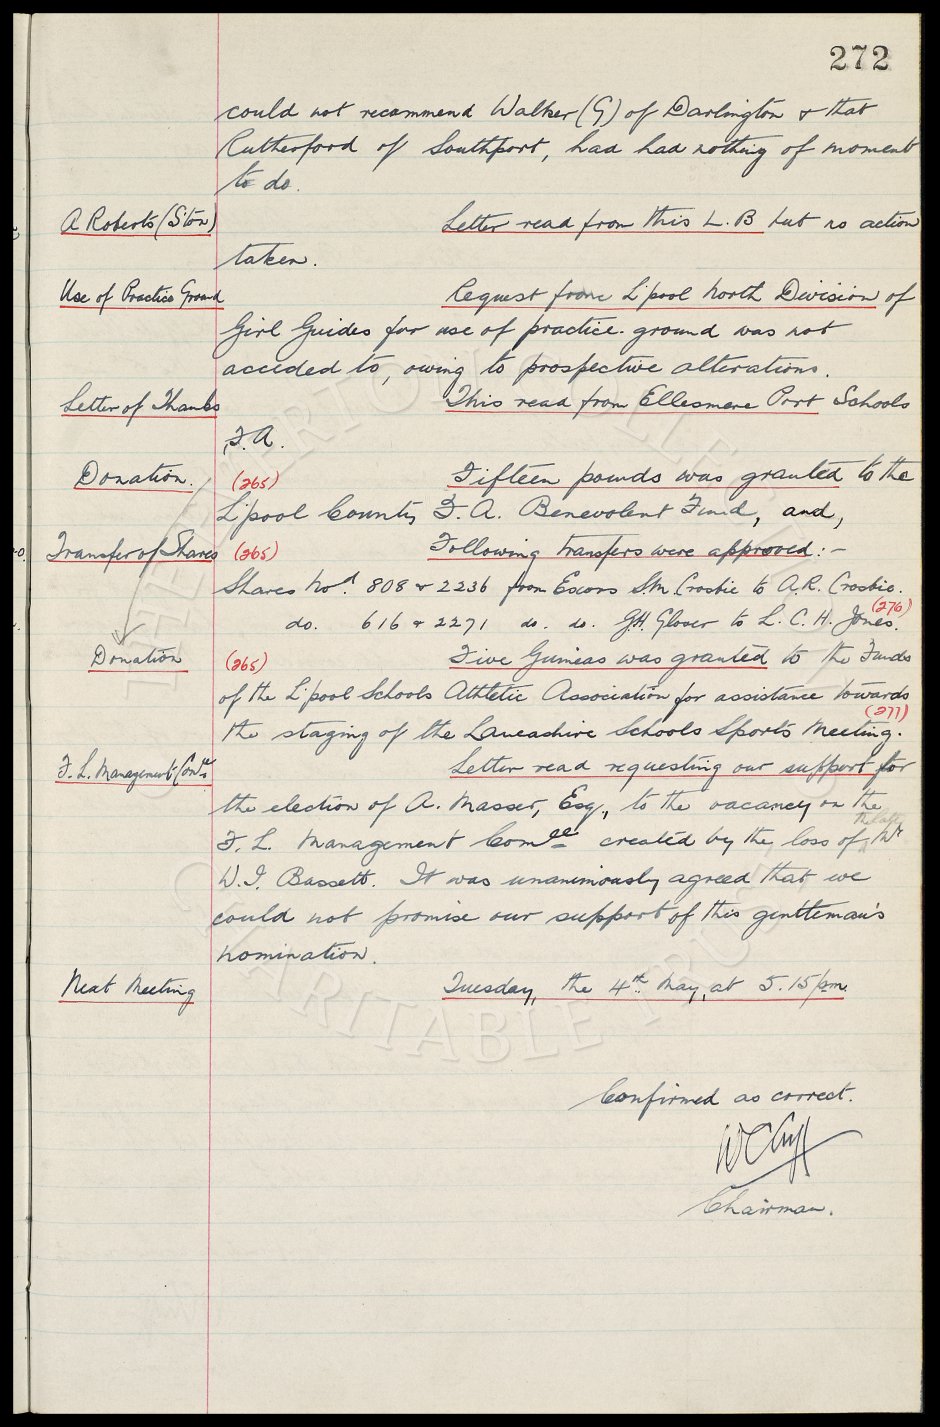 272
could not recommend Walker (G) of Darlington & that
Rutherford of Southport, had had nothing of moment
to do.
A Roberts (S'ton) Letter read from this L.B but no action
taken.
Use of Practice Ground Request from L'pool North Division of
Girl Guides for use of practice ground was not
acceded to, owing to prospective alterations.
Letter of Thanks This read from Ellesmere Port Schools
F.A.
Donation. (265) Fifteen pounds was granted to the
L'pool County F.A. Benevolent Fund, and,
Transfer of Shares (265) Following transfers were approved:-
Shares Nos. 808 & 2236 from Excors S.M. Crosbie to A.R. Crosbie.
(276)
do. 616 & 2271 do. do. J.H. Glover to L.C.H. Jones.
Donation (265) Five Guineas was granted to the Funds
of the L'pool Schools Athletic Association for assistance towards
(277)
the staging of the Lancashire Schools Sports Meeting.
F.L. Management Comtee Letter read requesting our support for
the election of A. Masser, Esq., to the vacancy on the
F.L. Management Comee created by the loss of the late Mr
W.I. Bassett. It was unanimously agreed that we
could not promise our support of this gentleman's
nomination.
Next Meeting Tuesday, the 4th May, at 5.15 pm.
Confirmed as correct.
W C Cuff
Chairman.
THE EVERTON COLLECTION
CHARITABLE TRUST